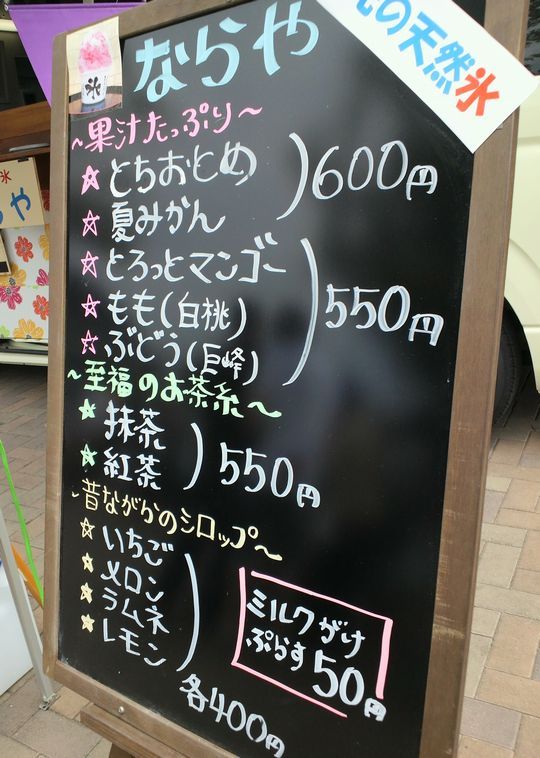 ならや
の天然氷
氷
~果汁たっぷり~
☆とちおとめ
☆夏みかん
600円
☆とろっとマンゴー
☆もも(白桃)
☆ぶどう(巨峰)
550円
~至福のお茶系~
☆抹茶
☆紅茶
550円
~昔ながらのシロップ~
☆いちご
☆メロン
☆ラムネ
☆レモン
各400円
ミルクがけ
ぷらす50円
氷
や